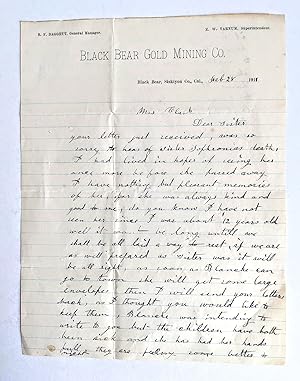 R. F. DAGGETT, General Manager. E. W. VARNUM, Superintendent.
BLACK BEAR GOLD MINING CO.
Black Bear, Siskiyou Co., Cal., Feb 28 191
Mrs Clark
Dear Sister
your letter just received, was so
sorry to hear of sister Sophronias death,
I had lived in hopes of seeing her
once more before she passed away
I have nothing but pleasant memories
of her, for she was always kind and
good to me, do you know I have not
seen her since I was about 12 years old
well it wont be long untill we
shall be all laid a way to rest, if we are
as well prepared as sister was it will
be all right, as soon as Blanche can
go to town she will get some large
envelopes then I will send your letters
back, as I thought you would like to
keep them Blanche was intending to
write to you but the children have both
been sick and she has had her hands
full they are some better to